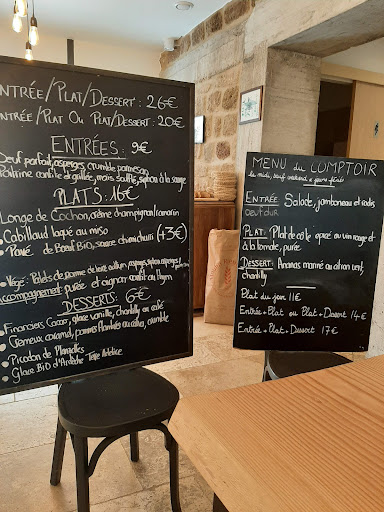 ENTRÉE/PLAT/DESSERT : 26€
ENTRÉE/PLAT OU PLAT/DESSERT : 20€
ENTRÉES : 9€
Oeuf parfait, asperges, crumble parmesan
Poitrine confite et grillée, maïs soufflé, siphon à la sauge
PLATS : 16€
Longe de Cochon, crème champignon/
• Cabillaud laqué au miso
• Pavé de Boeuf Bio, sauce chimichurri (+3€)
• Végé : Palets de pomme de terre au thym, asperges, siphon asperges
Accompagnement : purée et oignon confit au thym
DESSERTS : 6€
• Financiers Coco, glace vanille, chantilly au café
• Crémeux caramel, pommes au cidre, crumble
• Picodon de
• Glace BIO d'Ardèche Terre Adélice
MENU du COMPTOIR
le midi, sauf weekend et jours fériés
ENTRÉE : Salade, jambonneau et radis
PLAT : Plat de côte au vin rouge et
à la tomate, purée
DESSERT : Ananas mariné au citron vert,
chantilly
Plat du jour 11€
Entrée + Plat ou Plat + Dessert 14€
Entrée + Plat + Dessert 17€